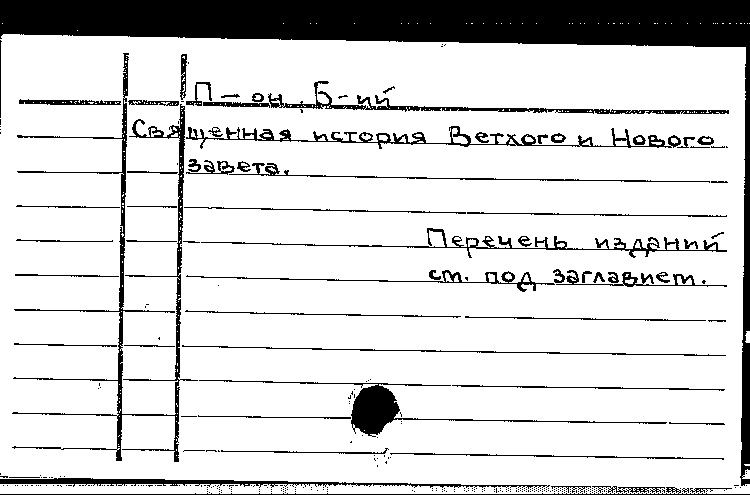 П-он, Б-ий
Священная история Ветхого и Нового
завета.
Перечень изданий
см. под заглавием.